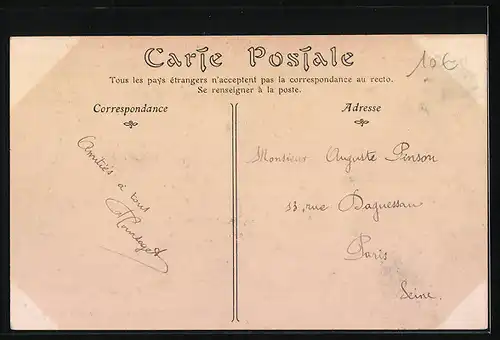 Carte Postale
10€
Tous les pays étrangers n'acceptent pas la correspondance au recto.
Se renseigner à la poste.
Correspondance
Amitiés à tous
Adresse
Monsieur Auguste Pinson
33, rue Daguessau
Paris
Seine.